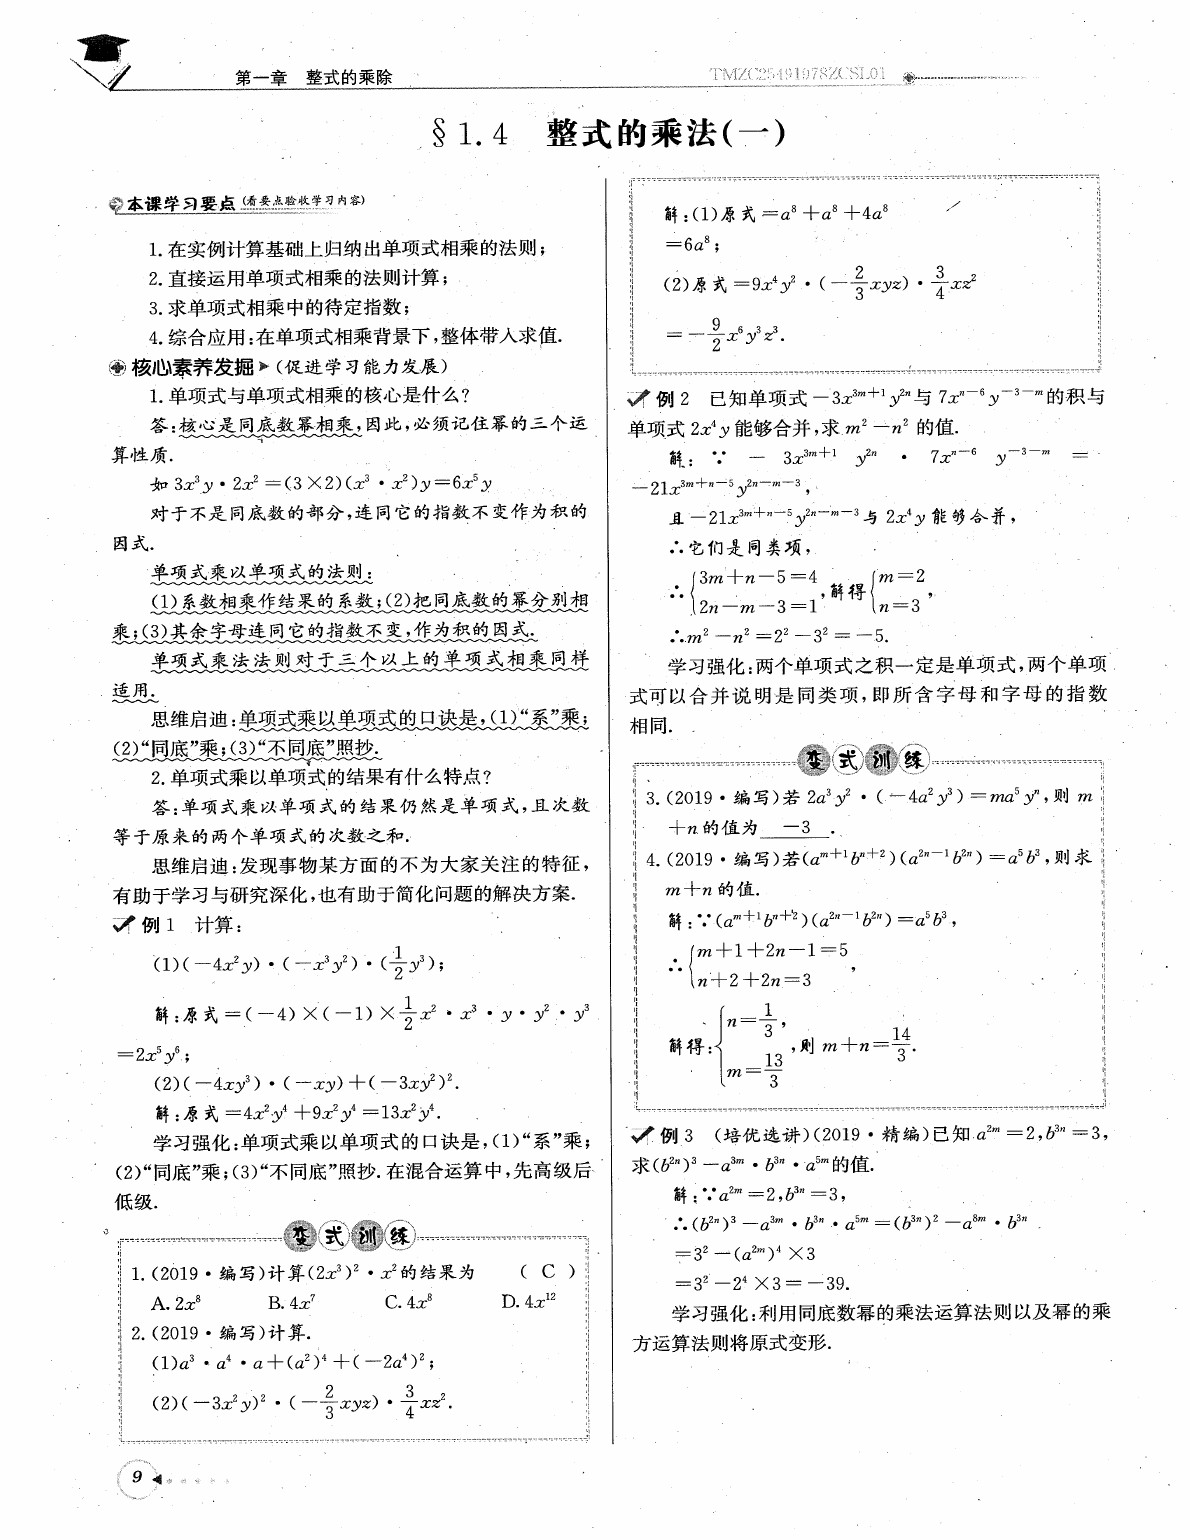 第一章 整式的乘除
TMZC25491978ZCSL01
§1.4 整式的乘法(一)
本课学习要点(看要点验收学习内容)
1.在实例计算基础上归纳出单项式相乘的法则;
2.直接运用单项式相乘的法则计算;
3.求单项式相乘中的待定指数;
4.综合应用:在单项式相乘背景下,整体带入求值.
核心素养发掘▶(促进学习能力发展)
1.单项式与单项式相乘的核心是什么?
答:核心是同底数幂相乘,因此,必须记住幂的三个运
算性质.
如 3x³y·2x²=(3×2)(x³·x²)y=6x⁵y
对于不是同底数的部分,连同它的指数不变作为积的
因式.
单项式乘以单项式的法则:
(1)系数相乘作结果的系数;(2)把同底数的幂分别相
乘;(3)其余字母连同它的指数不变,作为积的因式.
单项式乘法法则对于三个以上的单项式相乘同样
适用.
思维启迪:单项式乘以单项式的口诀是,(1)“系”乘;
(2)“同底”乘;(3)“不同底”照抄.
2.单项式乘以单项式的结果有什么特点?
答:单项式乘以单项式的结果仍然是单项式,且次数
等于原来的两个单项式的次数之和.
思维启迪:发现事物某方面的不为大家关注的特征,
有助于学习与研究深化,也有助于简化问题的解决方案.
例1 计算:
(1)(−4x²y)·(−x³y²)·(1/2 y³);
解:原式=(−4)×(−1)×1/2 x²·x³·y·y²·y³
=2x⁵y⁶;
(2)(−4xy³)·(−xy)+(−3xy²)².
解:原式=4x²y⁴+9x²y⁴=13x²y⁴.
学习强化:单项式乘以单项式的口诀是,(1)“系”乘;
(2)“同底”乘;(3)“不同底”照抄.在混合运算中,先高级后
低级.
变式训练
1.(2019·编写)计算(2x³)²·x²的结果为 ( C )
A.2x⁸ B.4x⁷ C.4x⁸ D.4x¹²
2.(2019·编写)计算.
(1)a³·a⁴·a+(a²)⁴+(−2a⁴)²;
(2)(−3x²y)²·(−2/3 xyz)·3/4 xz².
9
解:(1)原式=a⁸+a⁸+4a⁸
=6a⁸;
(2)原式=9x⁴y²·(−2/3 xyz)·3/4 xz²
=−9/2 x⁶y³z³.
例2 已知单项式−3x³ᵐ⁺¹y²ⁿ与7xⁿ⁻⁶y⁻³⁻ᵐ的积与
单项式2x⁴y能够合并,求m²−n²的值.
解:∵ − 3x³ᵐ⁺¹ y²ⁿ · 7xⁿ⁻⁶ y⁻³⁻ᵐ =
−21x³ᵐ⁺ⁿ⁻⁵y²ⁿ⁻ᵐ⁻³,
且−21x³ᵐ⁺ⁿ⁻⁵y²ⁿ⁻ᵐ⁻³与2x⁴y能够合并,
∴它们是同类项,
∴{3m+n−5=4 2n−m−3=1,解得{m=2 n=3,
∴m²−n²=2²−3²=−5.
学习强化:两个单项式之积一定是单项式,两个单项
式可以合并说明是同类项,即所含字母和字母的指数
相同.
变式训练
3.(2019·编写)若2a³y²·(−4a²y³)=ma⁵yⁿ,则m
+n的值为 −3 .
4.(2019·编写)若(aᵐ⁺¹bⁿ⁺²)(a²ⁿ⁻¹b²ⁿ)=a⁵b³,则求
m+n的值.
解:∵(aᵐ⁺¹bⁿ⁺²)(a²ⁿ⁻¹b²ⁿ)=a⁵b³,
∴{m+1+2n−1=5 n+2+2n=3,
解得:{n=1/3, m=13/3,则m+n=14/3.
例3 (培优选讲)(2019·精编)已知a²ᵐ=2,b³ⁿ=3,
求(b²ⁿ)³−a³ᵐ·b³ⁿ·a⁵ᵐ的值.
解:∵a²ᵐ=2,b³ⁿ=3,
∴(b²ⁿ)³−a³ᵐ·b³ⁿ·a⁵ᵐ=(b³ⁿ)²−a⁸ᵐ·b³ⁿ
=3²−(a²ᵐ)⁴×3
=3²−2⁴×3=−39.
学习强化:利用同底数幂的乘法运算法则以及幂的乘
方运算法则将原式变形.